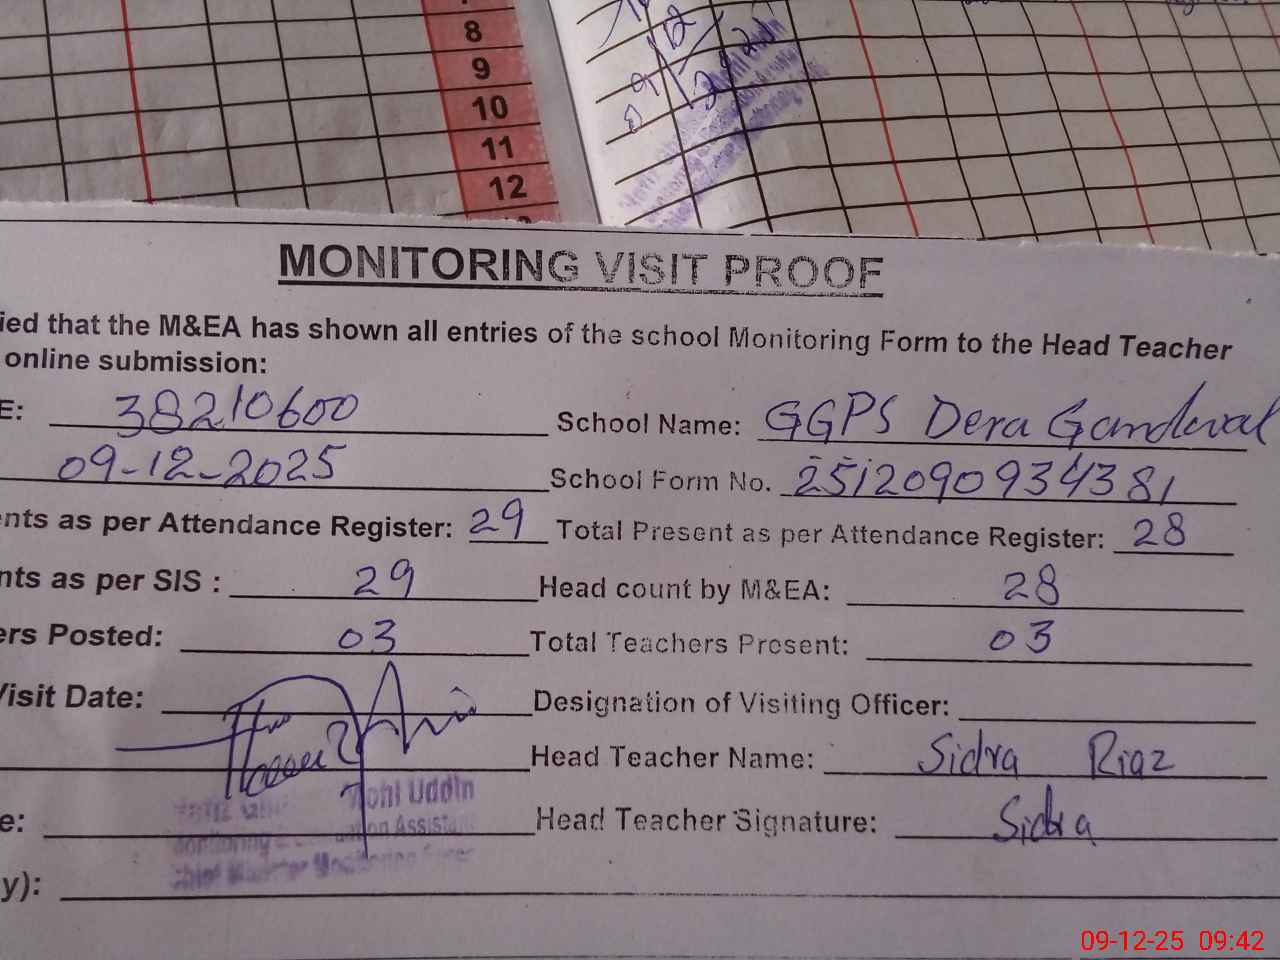 8
9
10
11
12
09/12/2025
MONITORING VISIT PROOF
ied that the M&EA has shown all entries of the school Monitoring Form to the Head Teacher
online submission:
E: 38210600 School Name: GGPS Dera Gandewal
09-12-2025 School Form No. 2512090934381
nts as per Attendance Register: 29 Total Present as per Attendance Register: 28
nts as per SIS : 29 Head count by M&EA: 28
ers Posted: 03 Total Teachers Present: 03
Visit Date: Designation of Visiting Officer:
Head Teacher Name: Sidra Riaz
Mohi Uddin
e: Head Teacher Signature: Sidra
Monitoring Assistant
Chief Minister Monitoring Force
y):
09-12-25 09:42